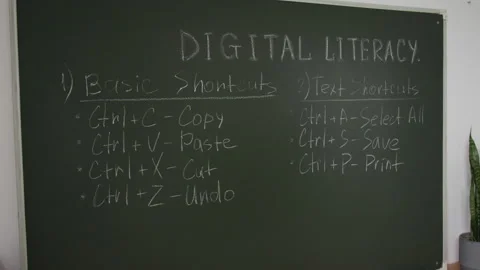 DIGITAL LITERACY.
1) Basic Shortcuts
• Ctrl + C - Copy
• Ctrl + V - Paste
• Ctrl + X - Cut
• Ctrl + Z - Undo
2) Text Shortcuts
• Ctrl + A - Select All
• Ctrl + S - Save
• Ctrl + P - Print